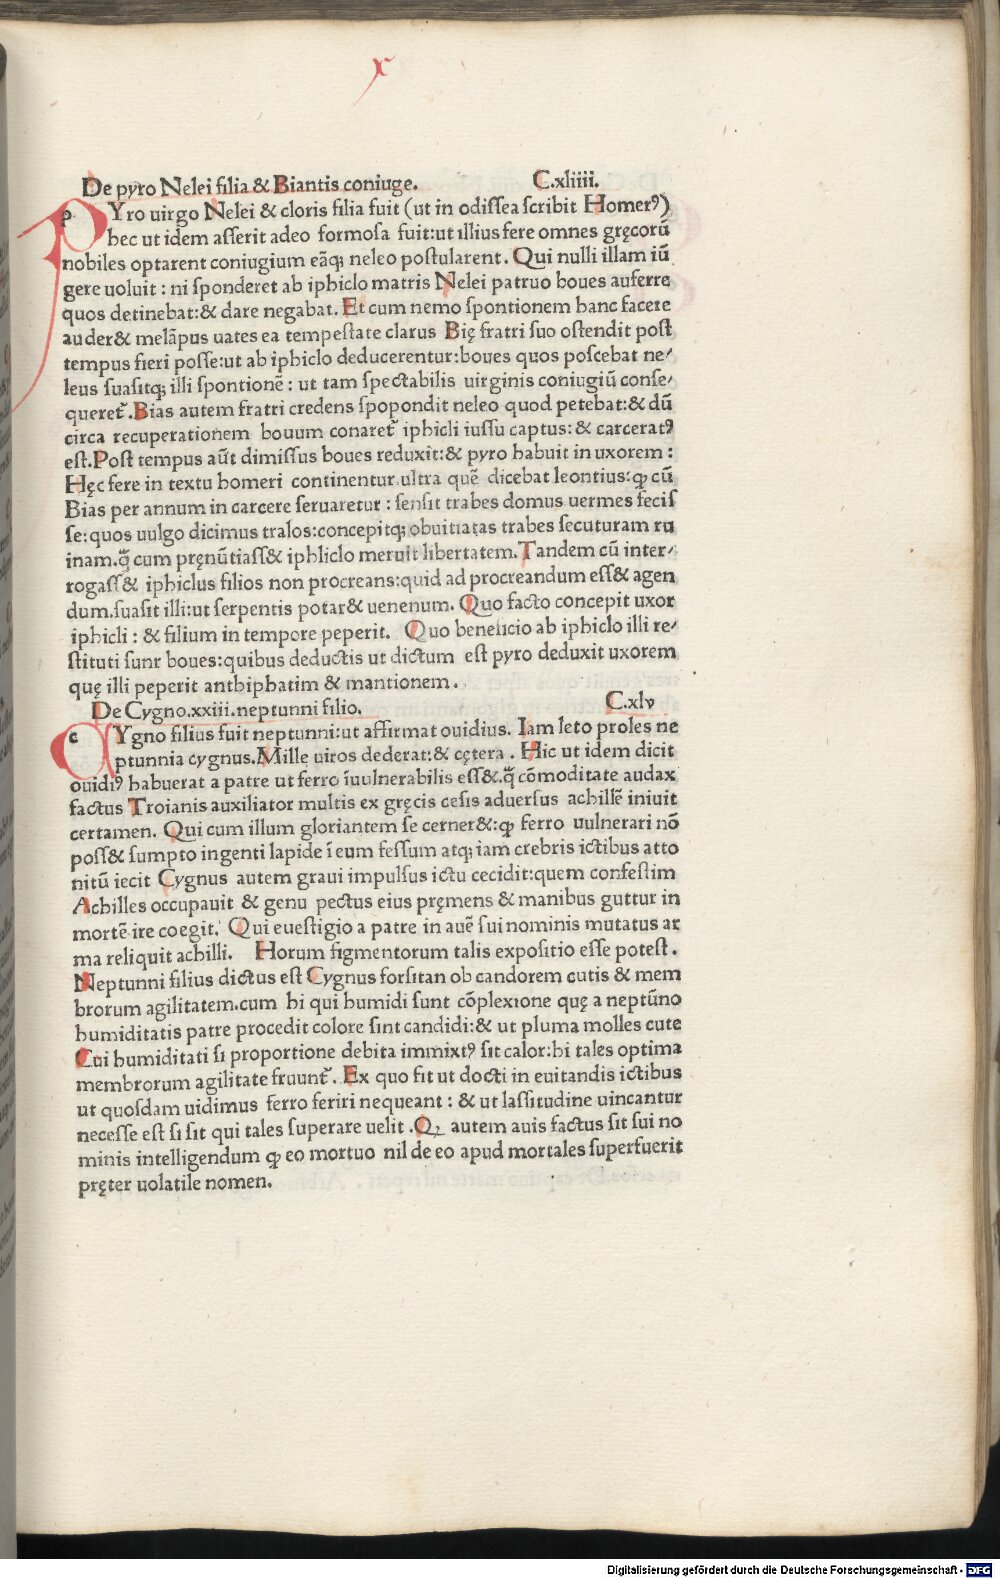 x
De pyro Nelei filia & Biantis coniuge. C.xliiii.
PYro uirgo Nelei & cloris filia fuit (ut in odissea scribit Homerꝰ)
hec ut idem asserit adeo formosa fuit:ut illius fere omnes gręcorũ
nobiles optarent coniugium eãqꝫ neleo postularent. Qui nulli illam iũ
gere uoluit : ni sponderet ab iphiclo matris Nelei patruo boues auferre
quos detinebat:& dare negabat. Et cum nemo spontionem hanc facere
auder& melãpus uates ea tempestate clarus Bię fratri suo ostendit post
tempus fieri posse:ut ab iphiclo deducerentur:boues quos poscebat ne⸗
leus suasitqꝫ illi spontionẽ : ut tam spectabilis uirginis coniugiũ conse⸗
queret᷑. Bias autem fratri credens spopondit neleo quod petebat:& dũ
circa recuperationem bouum conaret᷑ iphicli iussu captus: & carceratꝰ
est.Post tempus aũt dimissus boues reduxit:& pyro habuit in uxorem :
Hęc fere in textu homeri continentur ultra quẽ dicebat leontius:ꝙ cũ
Bias per annum in carcere seruaretur : sensit trabes domus uermes fecis
se:quos uulgo dicimus tralos:concepitqꝫ obuitiatas trabes secuturam ru
inam.q̃ cum pręnũtiass& iphliclo meruit libertatem.Tandem cũ inter⸗
rogass& iphiclus filios non procreans:quid ad procreandum ess& agen
dum.suasit illi:ut serpentis potar& uenenum. Quo facto concepit uxor
iphicli : & filium in tempore peperit. Quo beneficio ab iphiclo illi re⸗
stituti sunr boues:quibus deductis ut dictum est pyro deduxit uxorem
quę illi peperit anthiphatim & mantionem .
De Cygno.xxiii.neptunni filio. C.xlv
CYgno filius fuit neptunni:ut affirmat ouidius. Iam leto proles ne
ptunnia cygnus.Mille uiros dederat:& cętera . Hic ut idem dicit
ouidiꝰ habuerat a patre ut ferro ĩuulnerabilis ess&.q̃ cõmoditate audax
factus Troianis auxiliator multis ex gręcis cesis aduersus achillẽ iniuit
certamen. Qui cum illum gloriantem se cerner&:ꝙ ferro uulnerari nõ
poss& sumpto ingenti lapide ĩ eum fessum atqꝫ iam crebris ictibus atto
nitũ iecit Cygnus autem graui impulsus ictu cecidit:quem confestim
Achilles occupauit & genu pectus eius pręmens & manibus guttur in
mortẽ ire coegit. Qui euestigio a patre in auẽ sui nominis mutatus ar
ma reliquit achilli. Horum figmentorum talis expositio esse potest .
Neptunni filius dictus est Cygnus forsitan ob candorem cutis & mem
brorum agilitatem.cum hi qui humidi sunt cõplexione quę a neptũno
humiditatis patre procedit colore sint candidi:& ut pluma molles cute
Cui humiditati si proportione debita immixtꝰ sit calor:hi tales optima
membrorum agilitate fruunt᷑. Ex quo fit ut docti in euitandis ictibus
ut quosdam uidimus ferro feriri nequeant : & ut lassitudine uincantur
necesse est si sit qui tales superare uelit .Qꝫ autem auis factus sit sui no
minis intelligendum ꝙ eo mortuo nil de eo apud mortales superfuerit
pręter uolatile nomen.
Digitalisierung gefördert durch die Deutsche Forschungsgemeinschaft - DFG